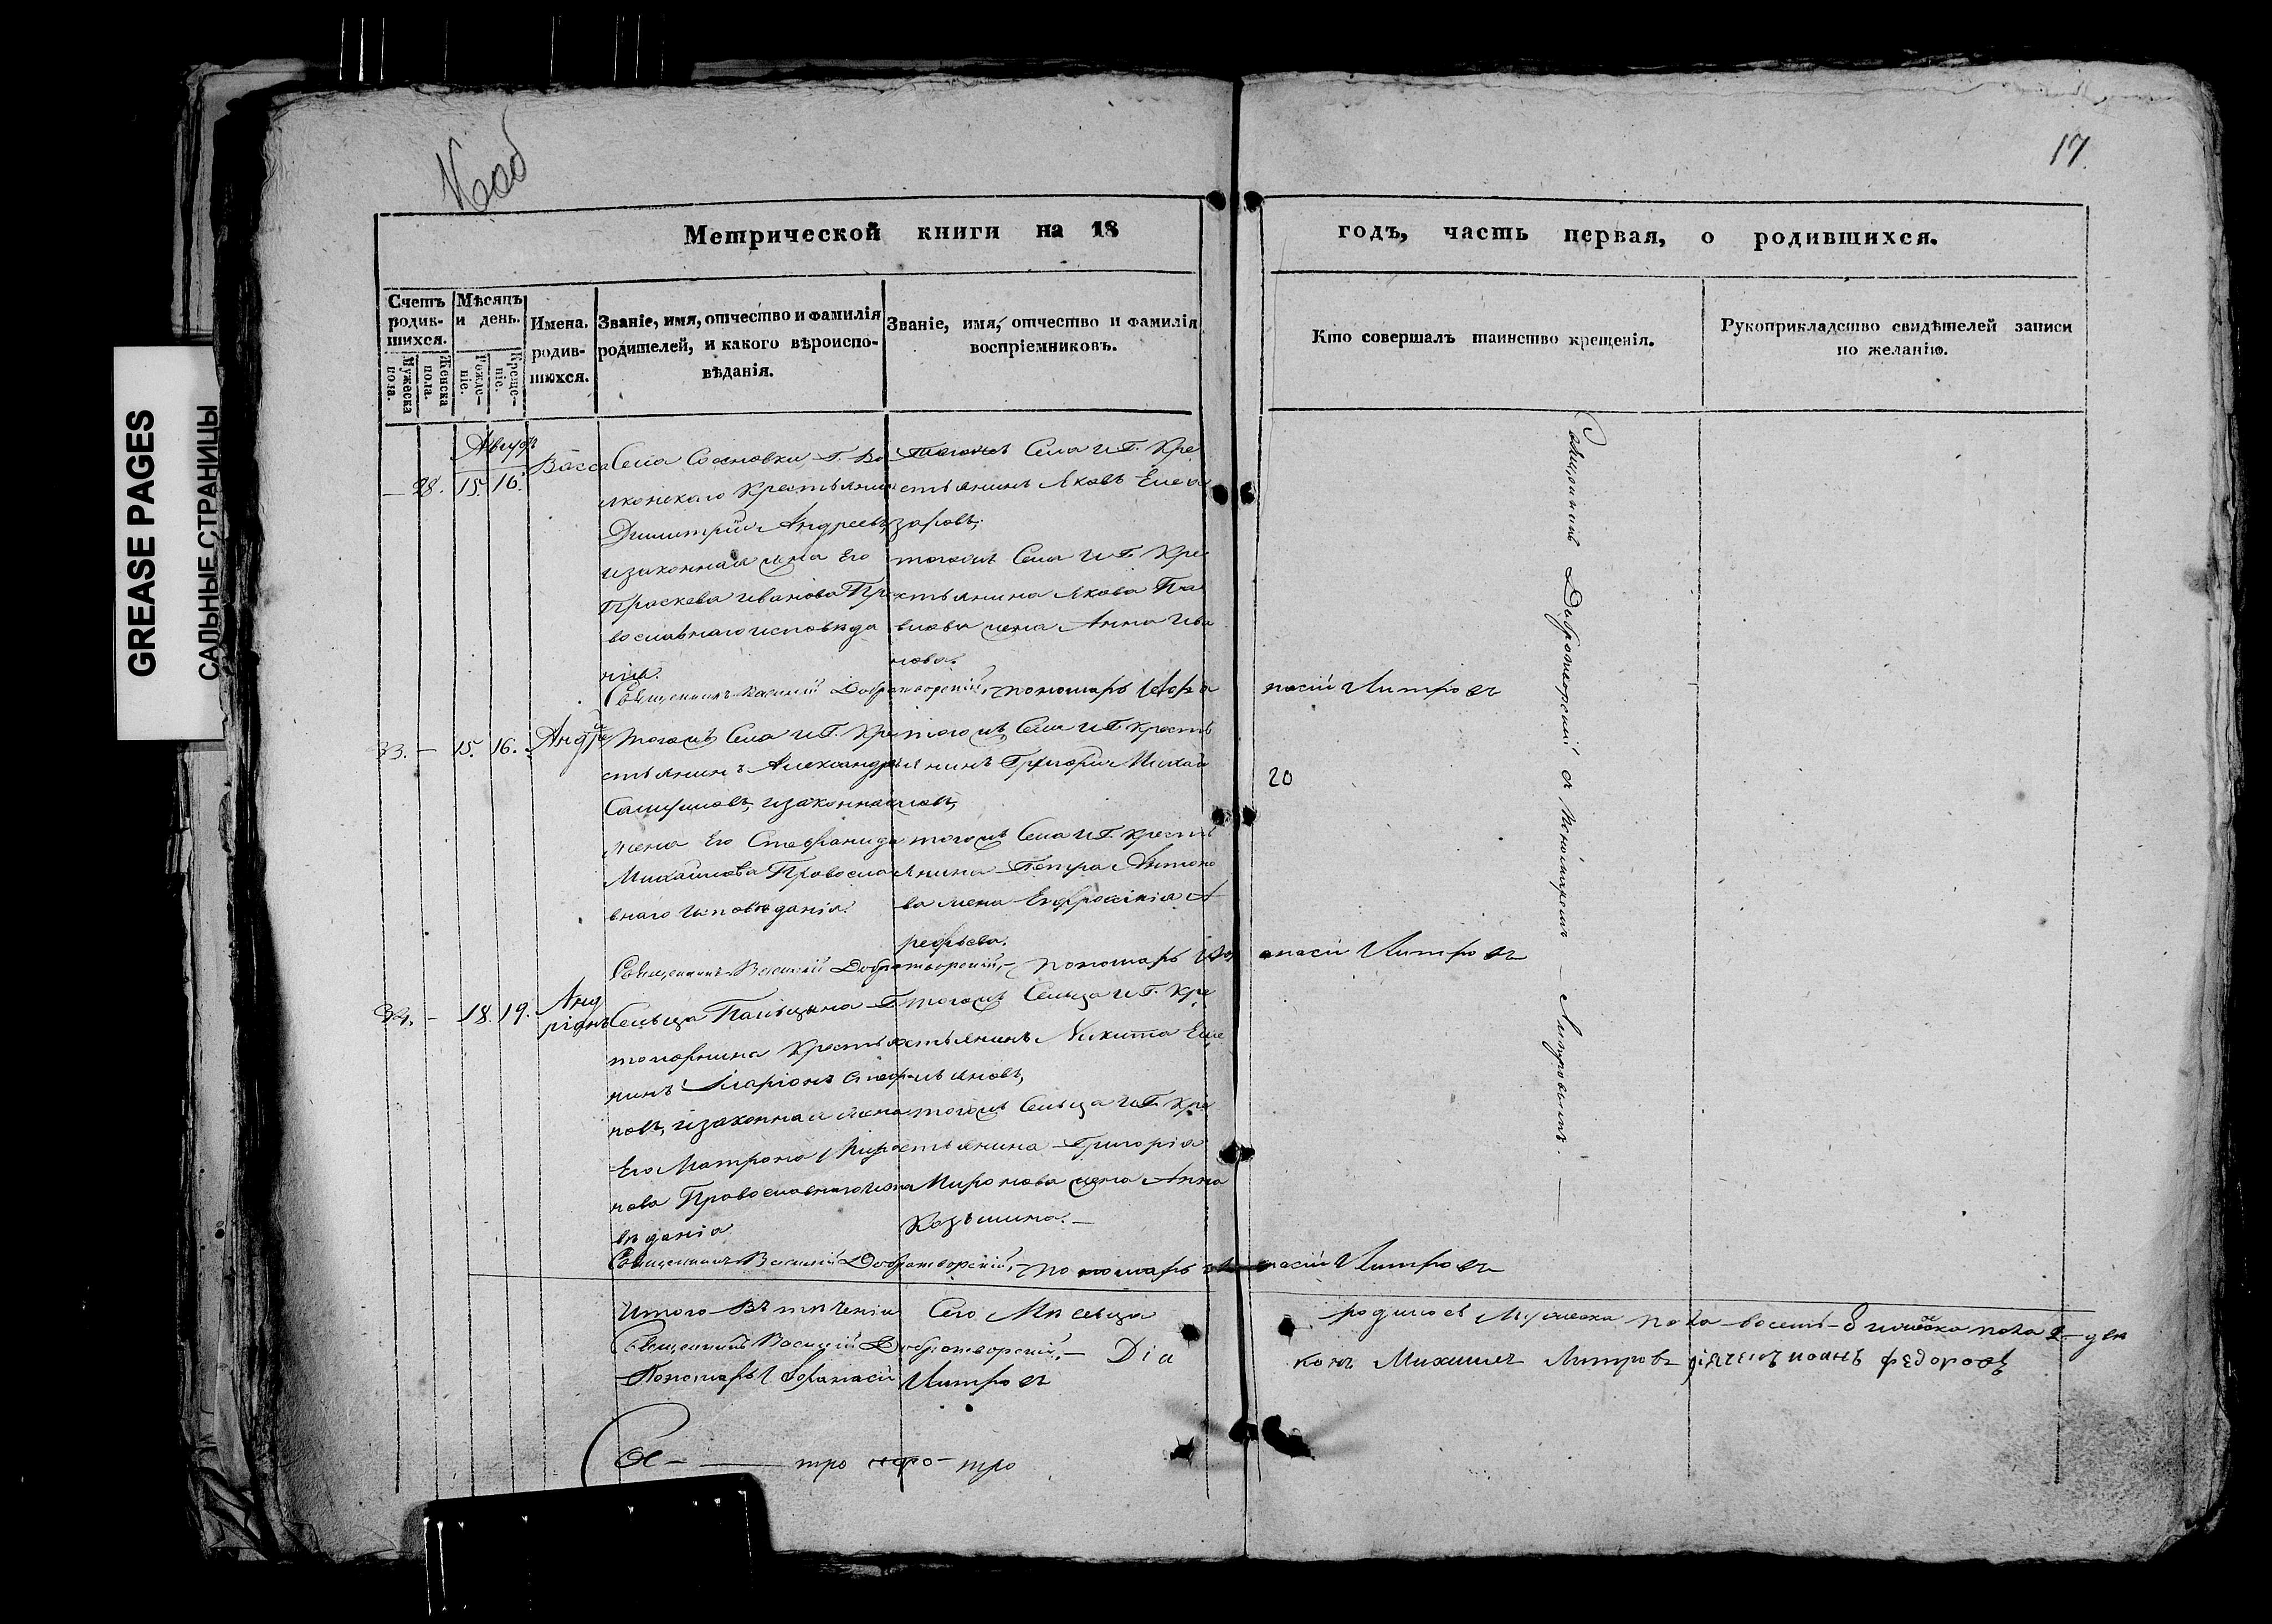 GREASE PAGES
САЛЬНЫЕ СТРАНИЦЫ
17.
Метрической книги на 18
годъ, часть первая, о родившихся.
Счетъ родив-шихся.
Мужеска пола.
Женска пола.
Мѣсяцъ и день.
Рожде-ніе.
Креще-ніе.
Имена родив-шихся.
Званіе, имя, отчество и фамилія родителей, и какого вѣроиспо-вѣданія.
Званіе, имя, отчество и фамилія воспріемниковъ.
Кто совершалъ таинство крещенія.
Рукоприкладство свидѣтелей записи по желанію.
Август
— 28. 15. 16.
Васса
Села Сосновки Г. Во
конскаго Крестьянин
Димитрій Андреевъ,
изаконная жена Его
Праскева Иванова Пра
вославнаго исповѣда
нія.
тогожъ Села иГ. Кре
стьянинъ Яковъ Елеа
заровъ,
тогожъ Села иГ. Кре
стьянина Якова Па
влова жена Анна Ива
нова.
Священникъ Василій Добротворскій, — пономарь Афа
насій Литровъ
33. — 15. 16.
Андрей
тогожъ Села иГ. Кре
стьянинъ Александръ
Самуиловъ, изаконная
жена Его Стефанида
Михайлова Правосла
внаго исповѣданія.
тогожъ Села иГ. Кресть
янинъ Григорій Михай
ловъ,
тогожъ Села иГ. Кресть
янина Петра Антоно
ва жена Евфросинія А
рефьева.
20
Священникъ Василій Добротворскій, — пономарь Аф
анасій Литровъ
34. — 18. 19.
Анд
ріанъ
Сельца Пальцына Г.
Кресть
нинъ Иларіонъ Стефа
новъ, изаконная жена
Его Матрона Миро
нова Православнаго испо
вѣданія
тогожъ Сельца иГ. Кре
стьянинъ Никита Еме
льяновъ,
тогожъ Сельца иГ. Кре
стьянина Григорія
Миронова жена Анна
Козьмина. —
Священникъ Василій Добротворскій, — пономарь Аф
насій Литровъ
Священникъ Добротворскій съ Пономаремъ — Литровымъ. —
Итого въ теченіи Сего Мѣсяца
родилось Мужеска пола восемь — 8 женска пола 2 — два
Священникъ Василій Добротворскій, — Діа
конъ Михаилъ Литровъ Дьячекъ Иоанъ Федоровъ
Пономарь Афанасій Литровъ